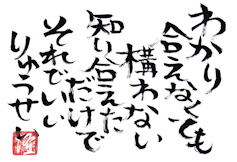 わかり
合えなくても
構わない
知り合えた
だけで
それでいい
りゅうせい